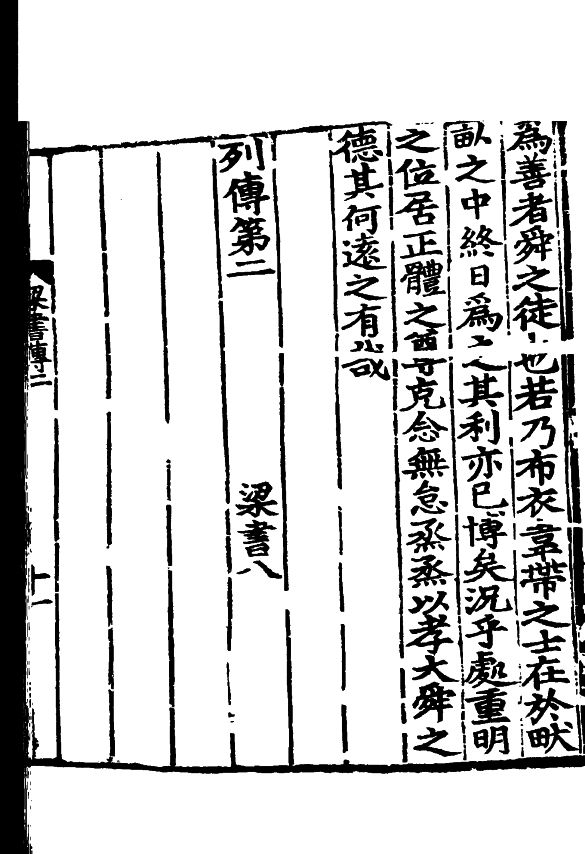 為善者舜之徒也若乃布衣韋帶之士在於畎
畝之中終日為之其利亦已博矣況乎處重明
之位居正體之尊克念無怠烝烝以孝大舜之
德其何遠之有哉
列傳第二 梁書八
梁書傳二 十一